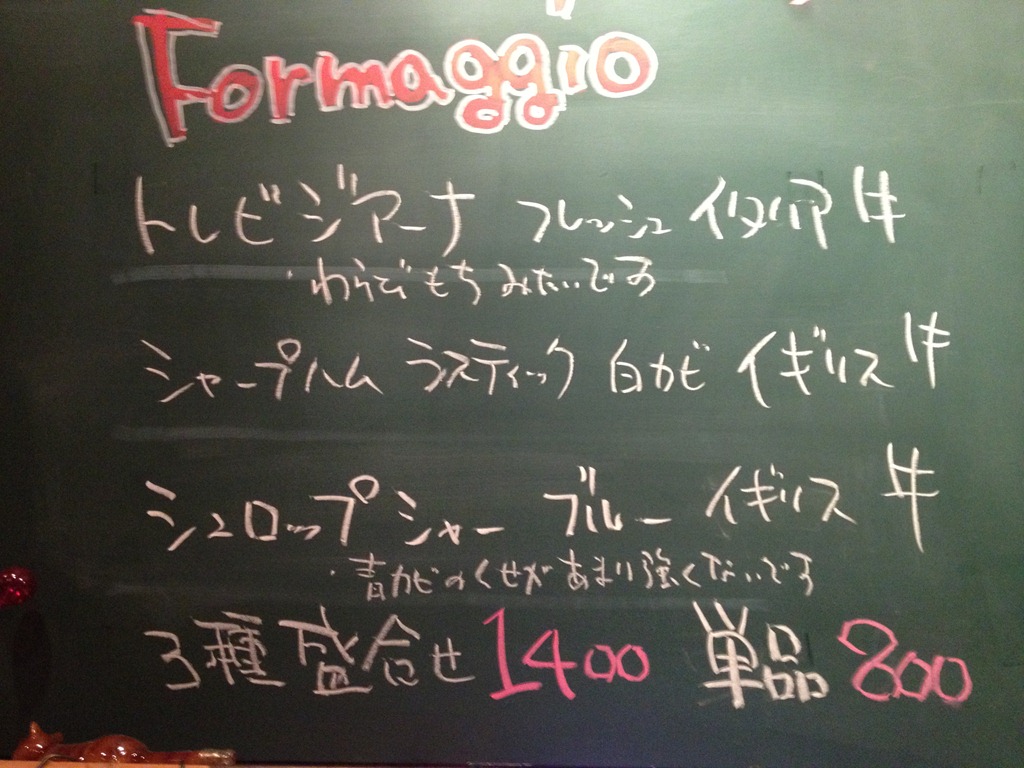 Formaggio
トレビジアーナ フレッシュ イタリア 牛
・わらびもちみたいです
シャープハム ラスティック 白カビ イギリス 牛
シュロップシャー ブルー イギリス 牛
・青カビのくせがあまり強くないです
3種盛合せ 1400 単品 800